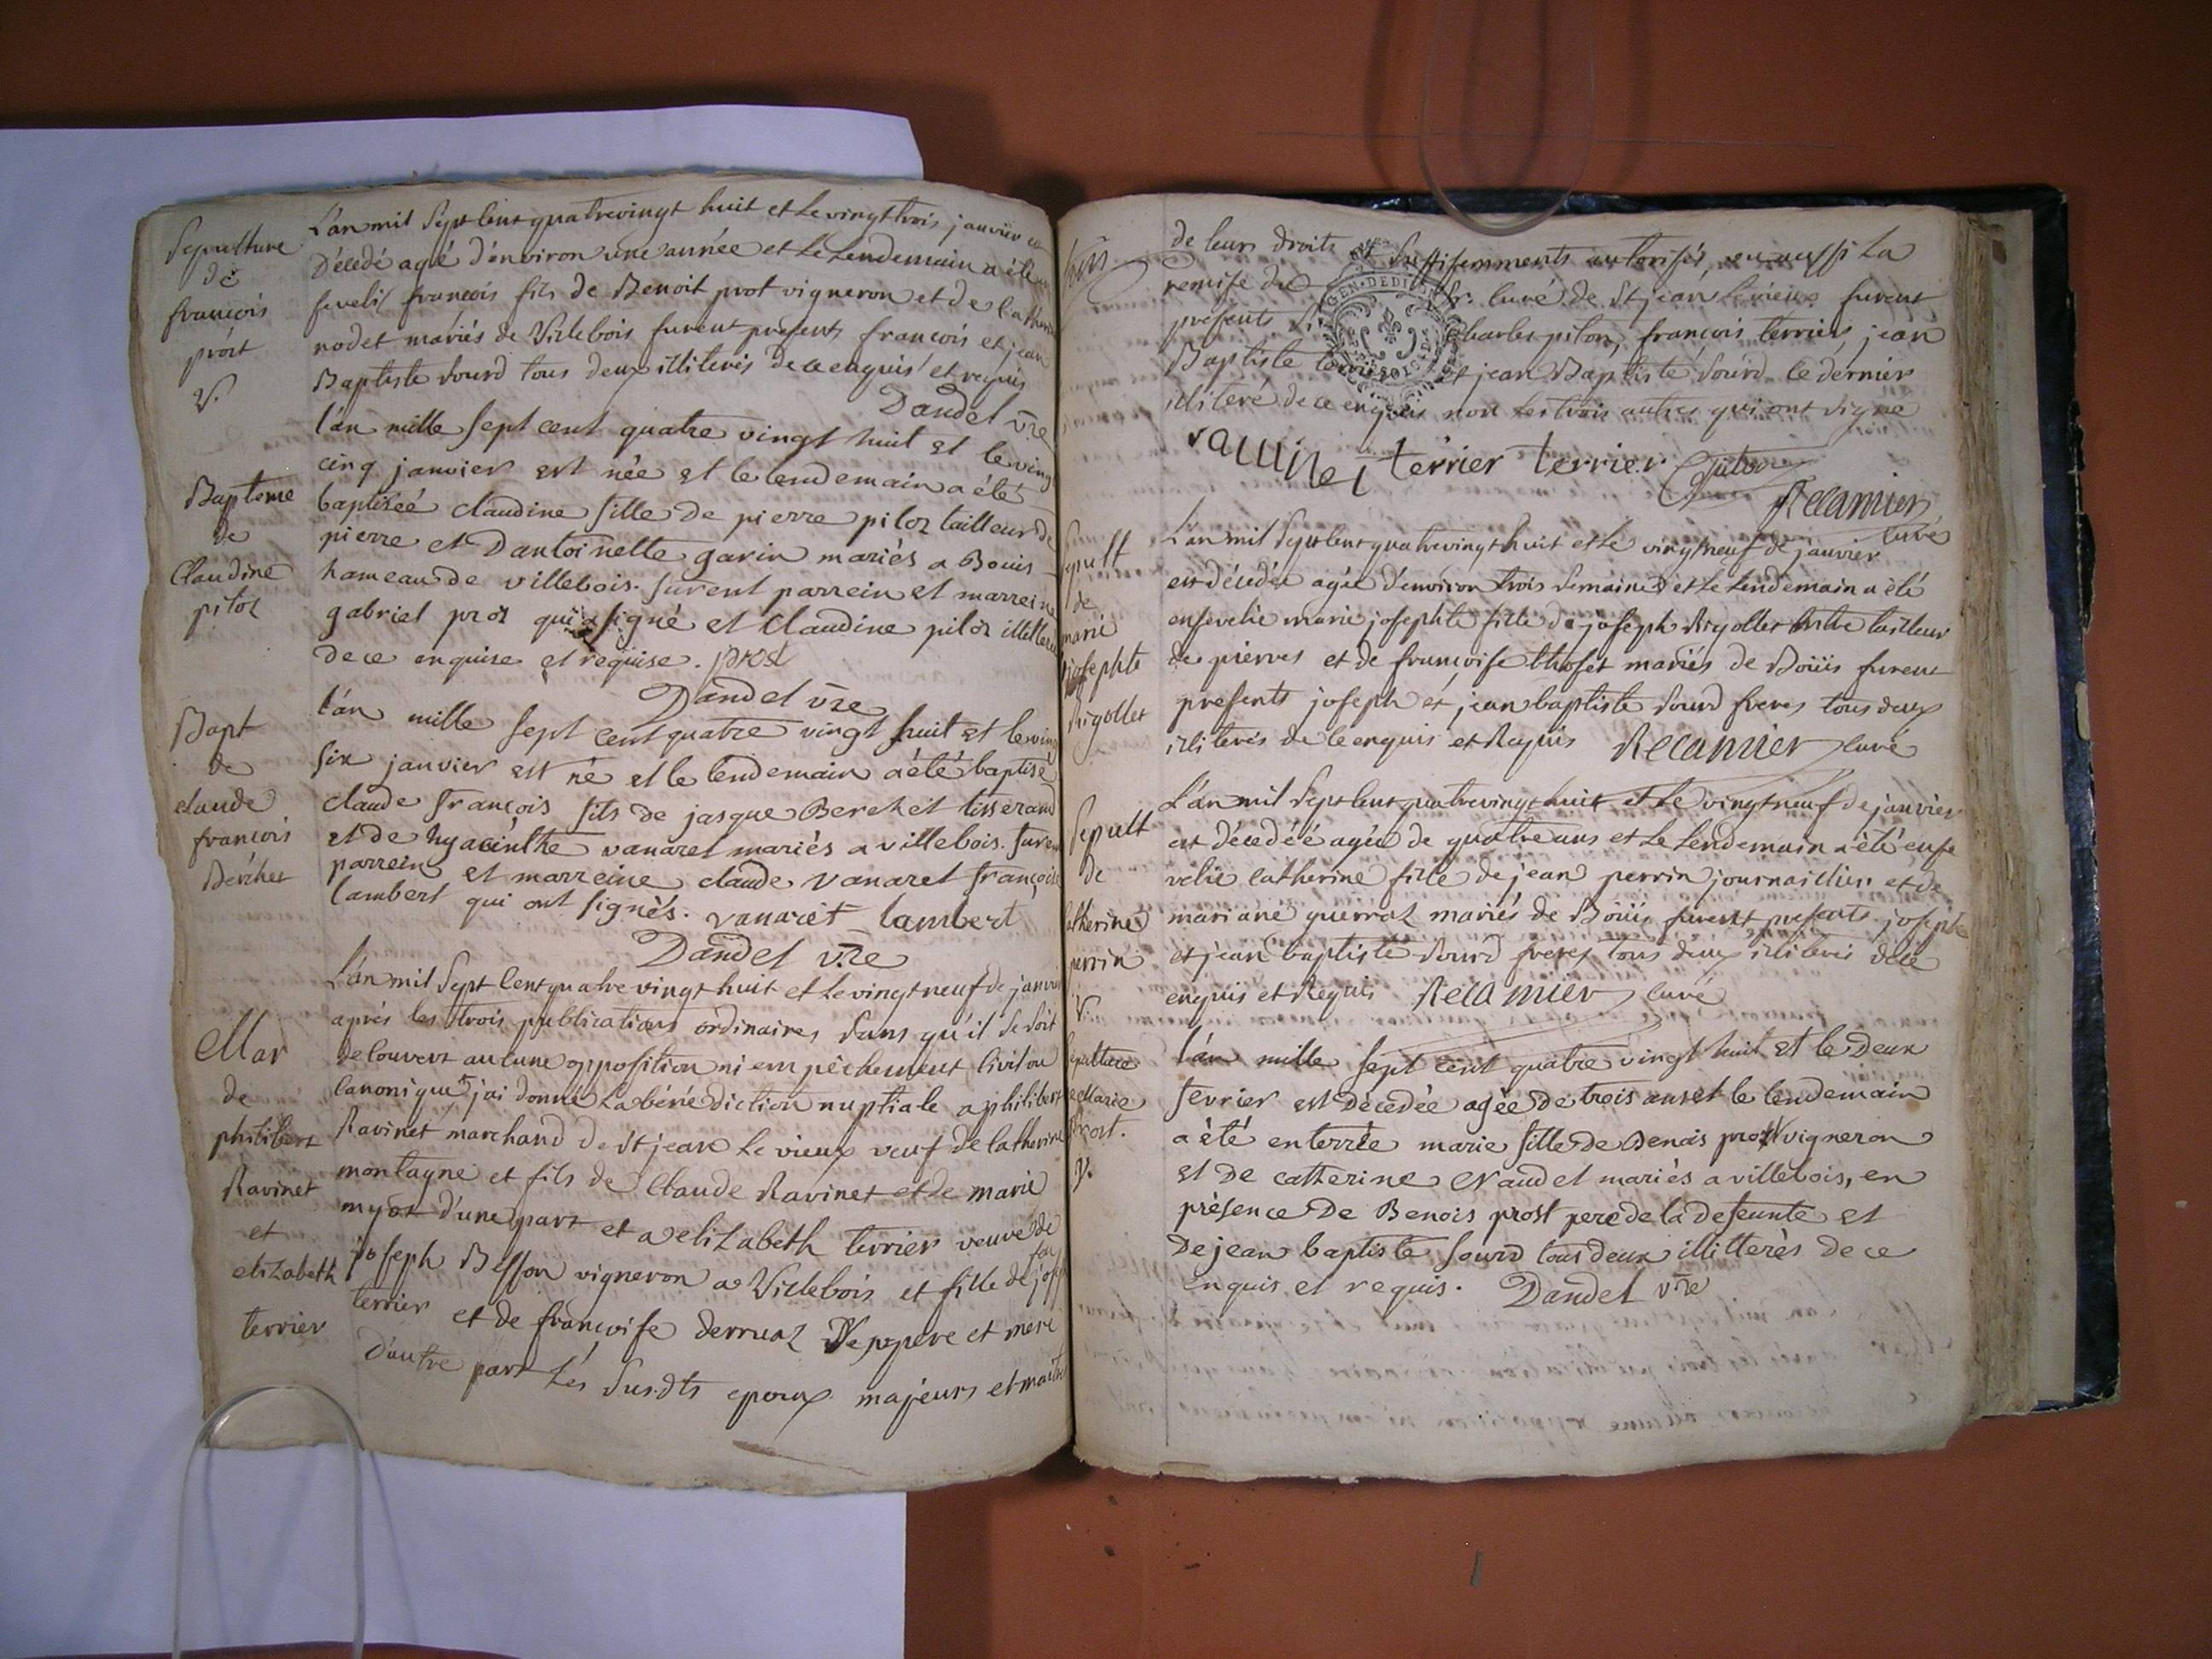 Sepulture
de
françois
prôt
V.
L'an mil Sept Cent quatrevingt huit et Le vingt trois janvier
Décédé agé d'environ une année et Le Lendemain a été
seveli françois fils de Benoit prot vigneron et de
nodet mariés de Villebois furent presents françois et jean
Baptiste sourd tous deux illiterés de ce enquis et requis
Dandel vre
Bapteme
de
Claudine
pitoz
l'an mille sept cent quatre vingt huit et le ving
cinq janvier est née et le lendemain a été
baptiseé claudine fille de pierre pitoz tailleur de
pierre et Dantoinette gavin mariés a Bouis
hameau de villebois. furent parrein et marreine
gabriel proz qui a signé et Claudine pitoz
de ce enquise et requise. prost
Dandel vre
Bapt
de
claude
françois
Berchet
l'an mille sept cent quatre vingt huit et le ving
six janvier est né et le lendemain a été baptisé
claude françois fils de jasque Berchet tisserand
et de hyacinthe vanaret mariés a villebois. furen
parrein et marreine claude vanaret françoise
lambert qui ont signés. vanaret lambert
Dandel vre
Mar
de
philibert
Ravinet
et
elizabeth
terrier
L'an mil Sept Cent quatre vingt huit et Le vingt neuf de janvi
aprés les trois publications ordinaires sans qu'il se soit
découvert aucune opposition ni empêchement civil ou
canonique j'ai donné La bénédiction nuptiale a philibert
Ravinet marchand de St jean Le vieux veuf de Catherine
montagne et fils de Claude Ravinet et de marie
myot d'une part et a elizabeth terrier veuve de
joseph Besson vigneron a Villebois et fille de feu
terrier et de françoise derruaz Ses pere et mere
D'autre part Les Susdts epoux majeurs et maitre
de leurs droits et Suffisemments autorisés, vu aussi La
remise du Sr. Curé de St jean Levieux furent
presents Charles piton, françois terrier, jean
Baptiste et jean Baptiste Sourd le dernier
illiteré de ce enquis non Les trois autres qui ont signe
terrier terrier
Recamier
Curé
Sepult
de
marie
josephte
Rigollet
L'an mil Sept Cent quatrevingt huit et Le vingt neuf de janvier
est décédée agée d'environ trois Semaines et Le Lendemain a été
ensevelie marie josephte fille de joseph Rigollet tailleur
de pierres et de françoise thoset mariés de Boüis furent
presents joseph et jean baptiste Sourd freres tous deux
illiterés de Ce enquis et Requis Recamier Curé
Sepult
de
atherine
perrin
V.
L'an mil Sept Cent quatrevingt huit et Le vingt neuf de janvier
est décedéé agée de quatre ans et Le Lendemain a été ense
velie Catherine fille de jean perrin journaillier et de
mariane guerraz mariés de Boüis furent presents joseph
et jean baptiste Sourd freres tous deux illiterés de Ce
enquis et Requis Recamier Curé
epulture
e Marie
prost.
V.
l'an mille sept cent quatre vingt huit et le Deux
fevrier est Décedée agée de trois ans et le lendemain
a été enterrée marie fille de Benois prost vigneron
et De catherine Naudet mariés a villebois, en
présence De Benois prost pere de la defeunte et
De jean baptiste sourd tous deux illitterés de ce
enquis et requis. Dandel vre